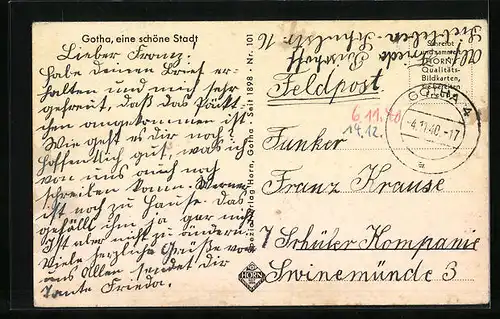 Gotha, eine schöne Stadt
Lieber Franz.
Habe deinen Brief er-
halten und mich sehr
gefreut, daß das Päck-
chen angekommen ist.
Wie geht es dir noch?
Hoffentlich gut, was ich
von uns auch noch
schreiben kann. Werner
ist noch zu Hause. Das
gefällt ihm ja gar nicht
Ist aber nicht zu ändern.
Viele herzliche Grüße von
uns Allen sendet dir
Tante Frieda.
Spezialverlag Horn, Gotha - Seit 1898 - Nr. 101
HORN
Abs.
Frieda
Siebleben Schulstr. 16
Schreibt
und sammelt
HORN
Qualitäts-
Bildkarten,
Feldpost
GOTHA 4
-4.11.40.-17
a
6.11.40
14.12.
Funker
Franz Krause
7 Schüler Kompanie
Swinemünde 3